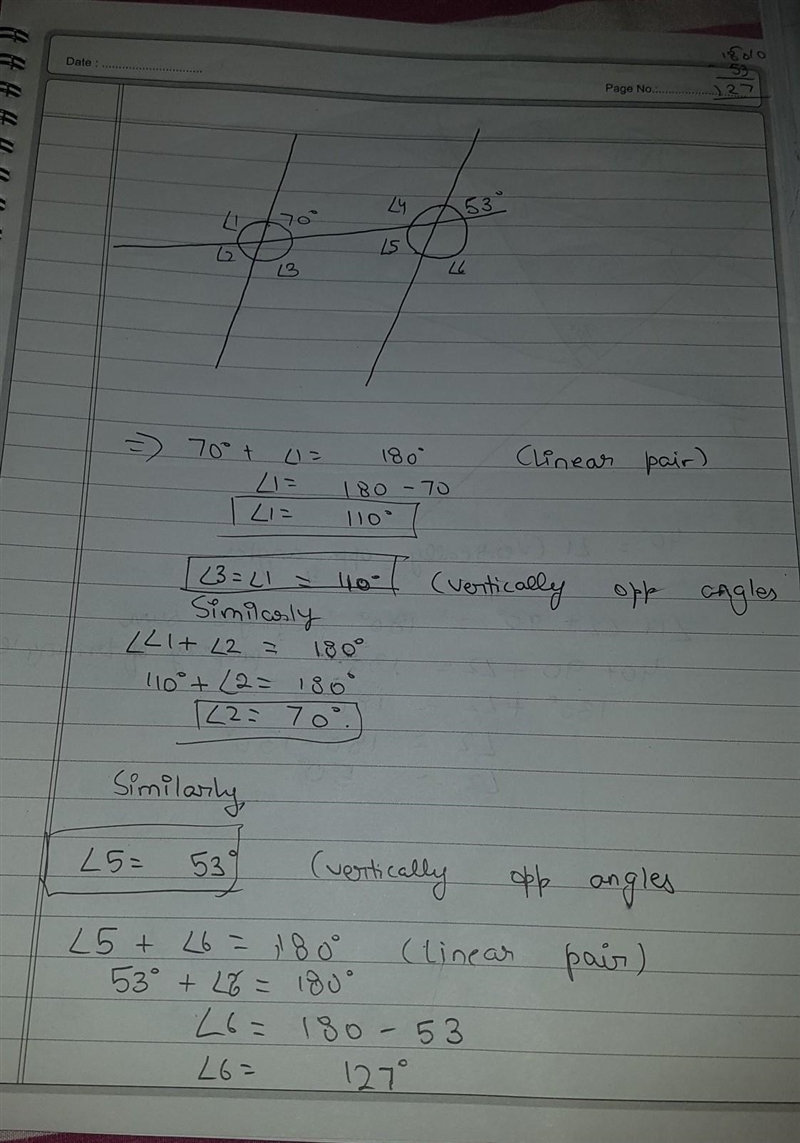 Date : ............................
Page No.....................
180
53
127
∠1 70°
∠2
∠3
∠4 53°
∠5
∠6
=> 70° + ∠1 = 180° (linear pair)
∠1 = 180 - 70
∠1 = 110°
∠3 = ∠1 = 110° (vertically opp angles
Similarly
∠∠1 + ∠2 = 180°
110° + ∠2 = 180°
∠2 = 70°.
Similarly,
∠5 = 53° (vertically opp angles
∠5 + ∠6 = 180° (linear pair)
53° + ∠6 = 180°
∠6 = 180 - 53
∠6 = 127°